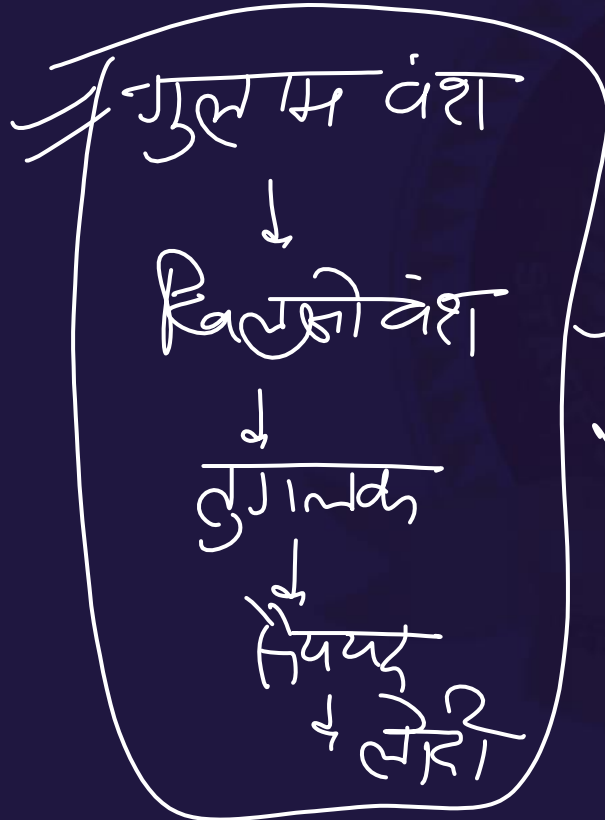 गुलाम वंश
↓
खिलजी वंश
↓
तुगलक
↓
सैययद
↓ लोदी